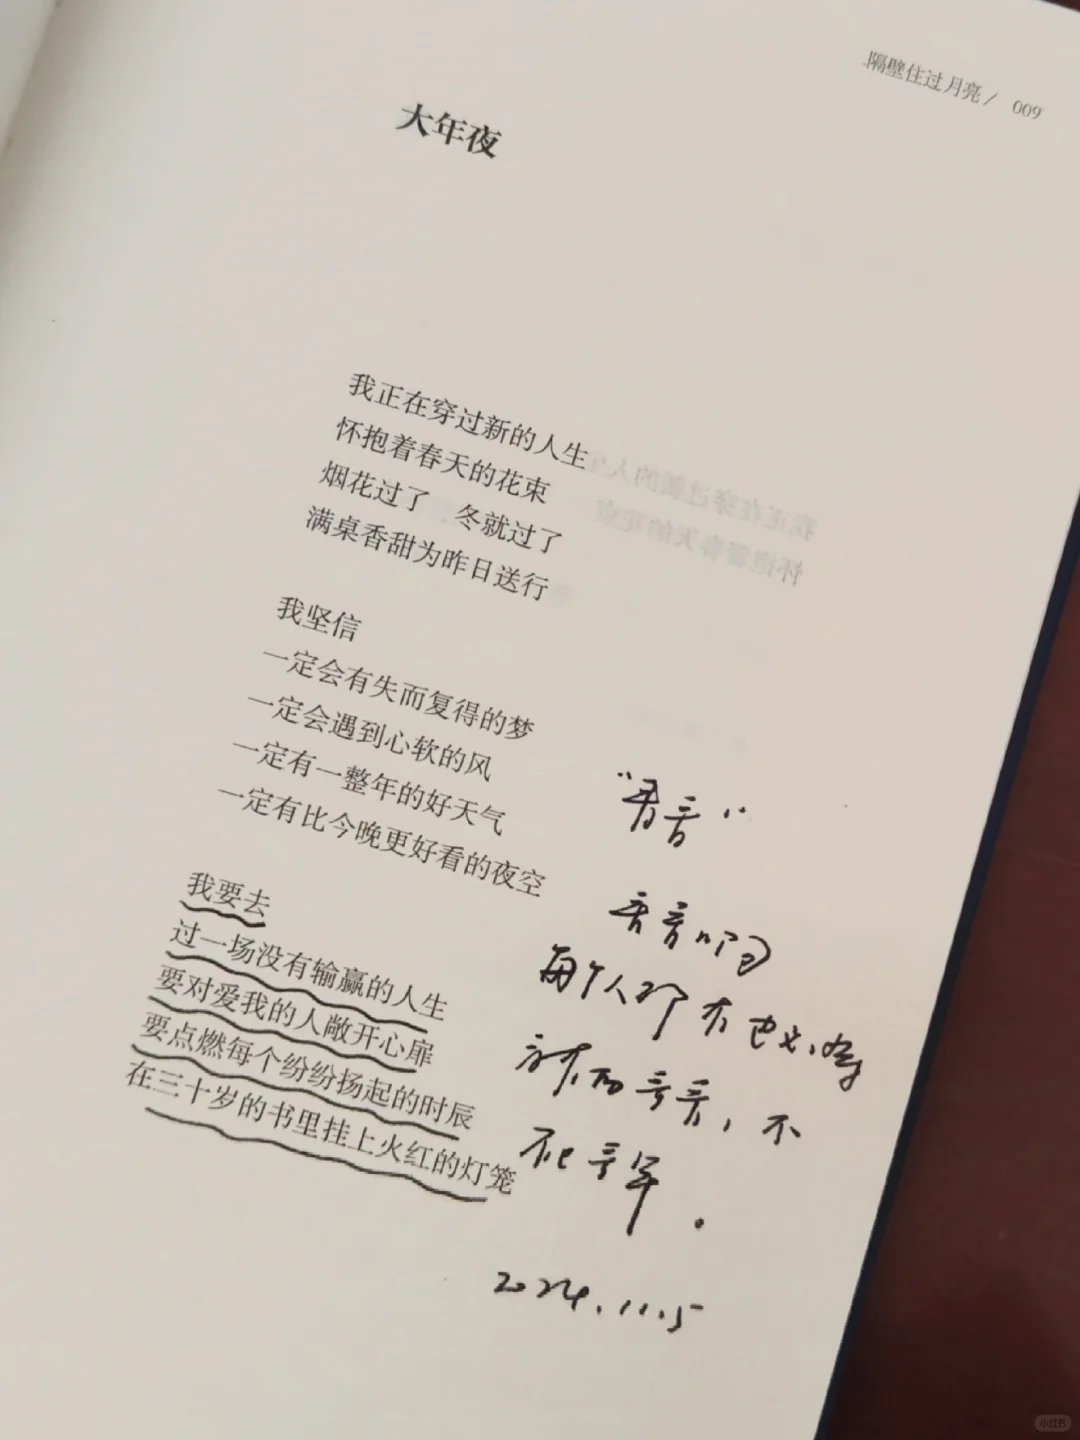 隔壁住过月亮/ 009
大年夜
我正在穿过新的人生
怀抱着春天的花束
烟花过了 冬就过了
满桌香甜为昨日送行
我坚信
一定会有失而复得的梦
一定会遇到心软的风
一定有一整年的好天气
一定有比今晚更好看的夜空
我要去
过一场没有输赢的人生
要对爱我的人敞开心扉
要点燃每个纷纷扬起的时辰
在三十岁的书里挂上火红的灯笼
每个人都
不
2024.11.5
小红书